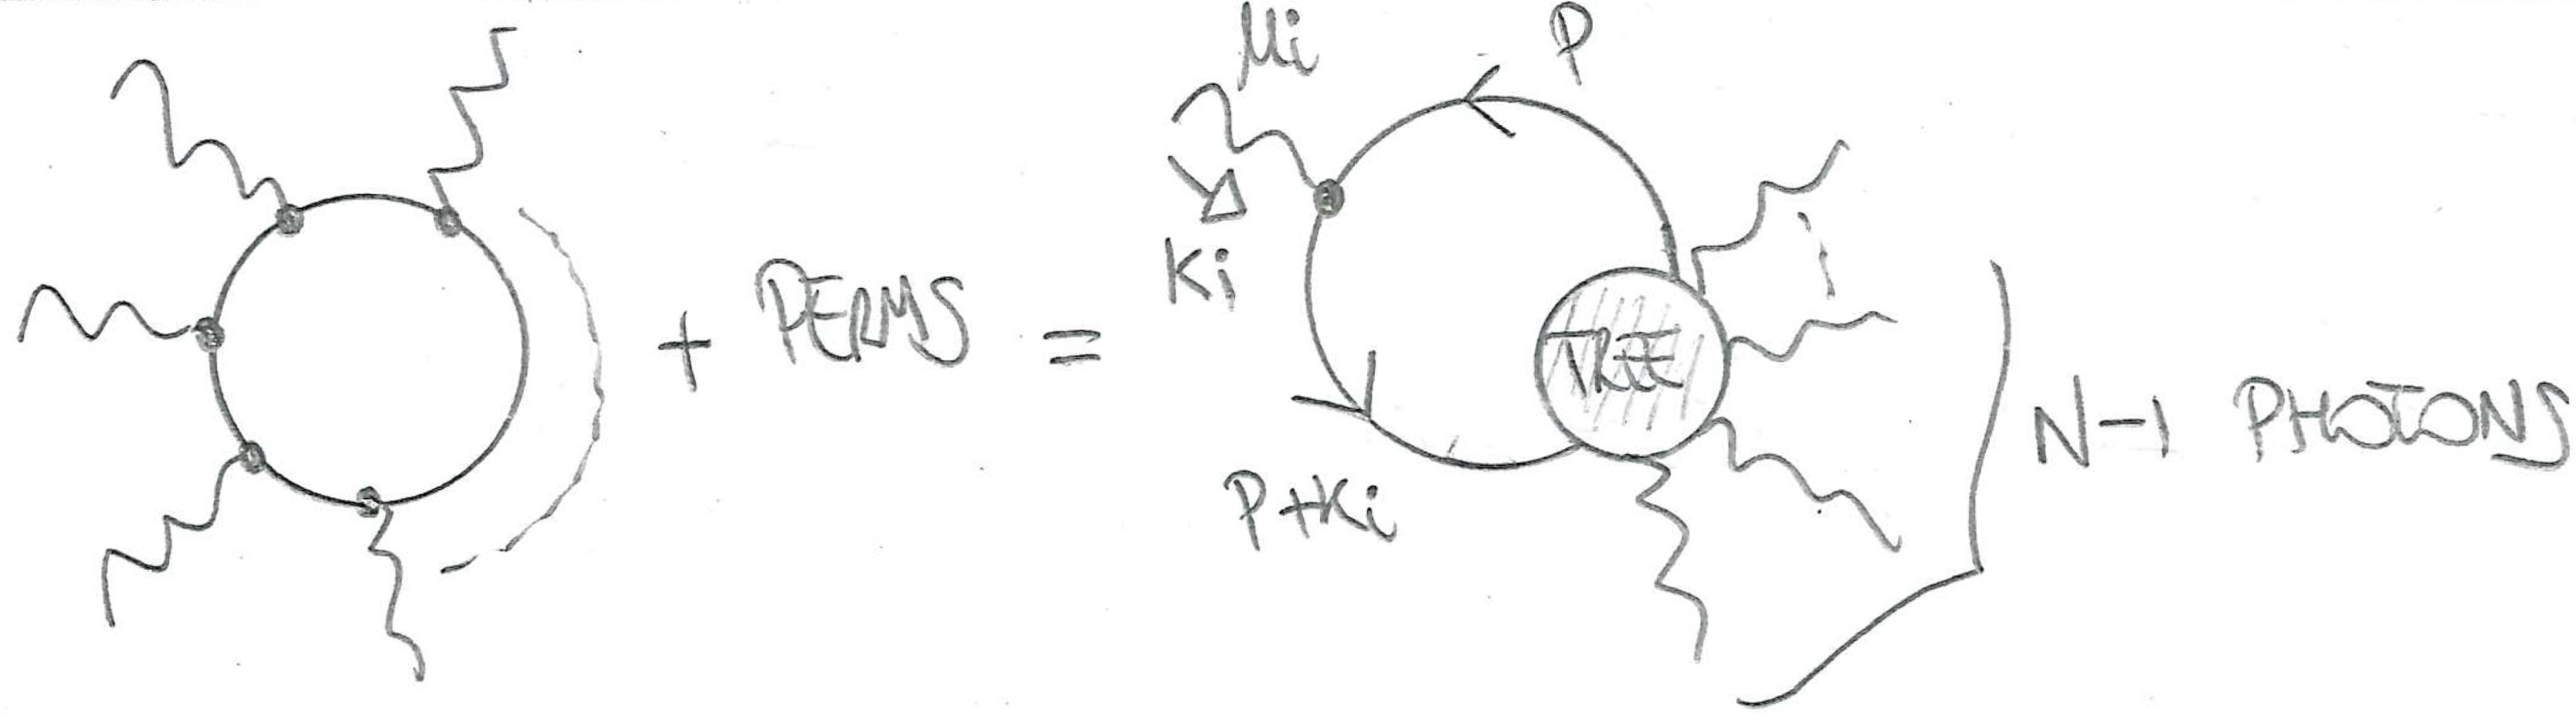 + PERMS =
μi
P
Ki
TREE
P+Ki
N-1 PHOTONS